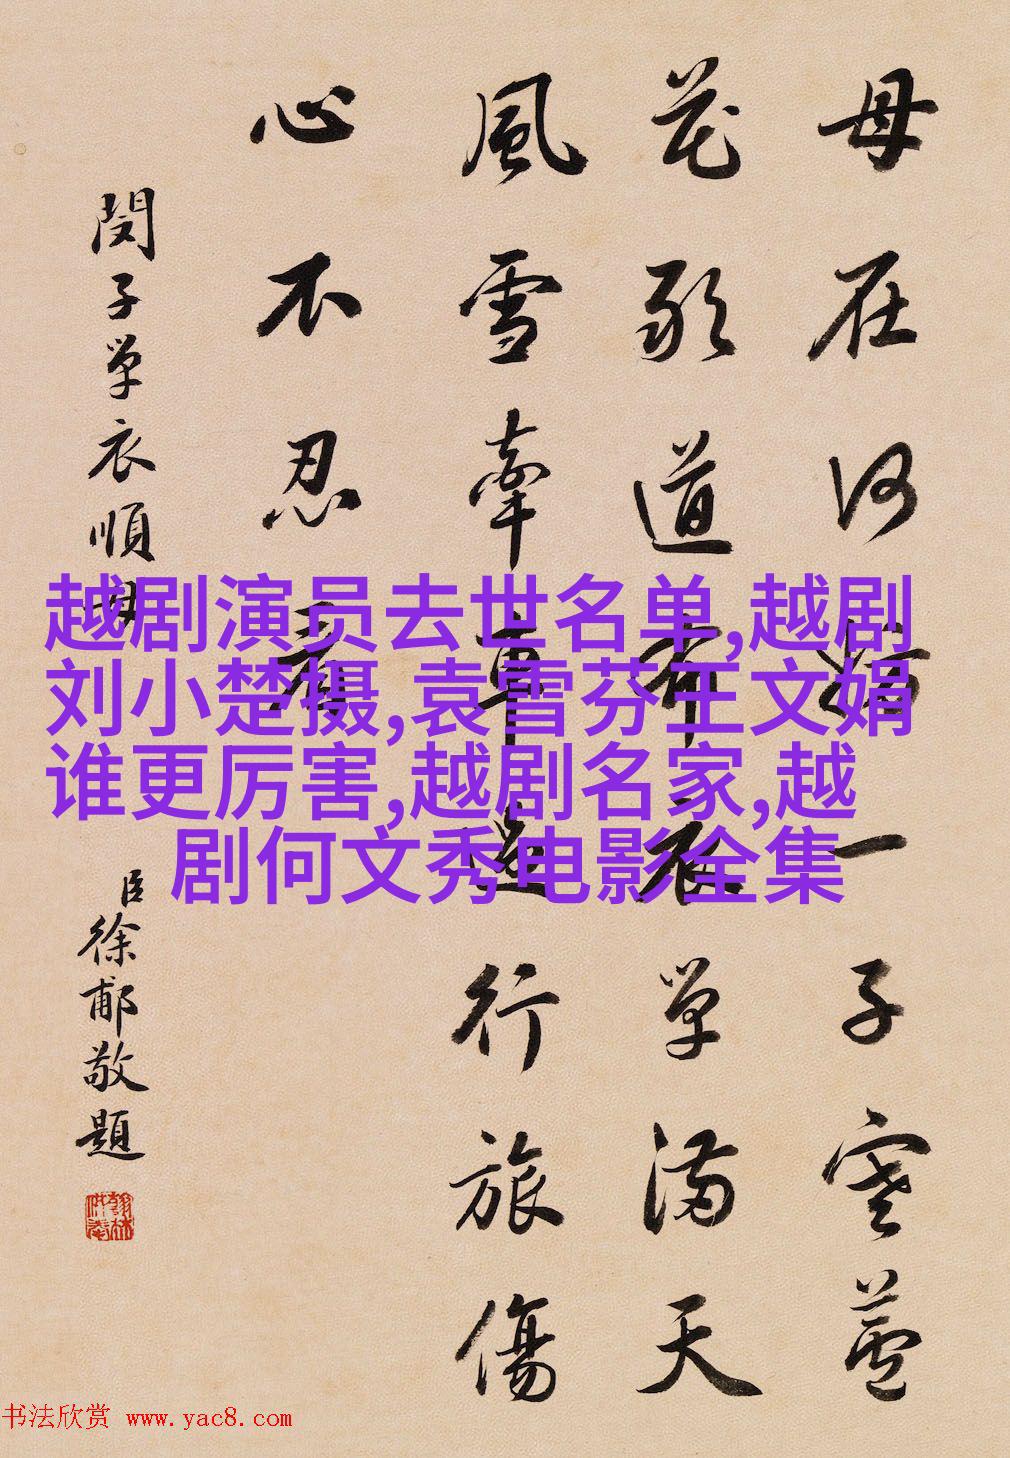 母在何妨一子寒蘆
花道布衣單滿天
風雪牽車行旅傷
心不忍看
閔子單衣順母
臣徐郙敬題
越剧演员去世名单,越剧
刘小楚摄,袁雪芬王文娟
谁更厉害,越剧名家,越
剧何文秀电影全集
书法欣赏 www.yac8.com